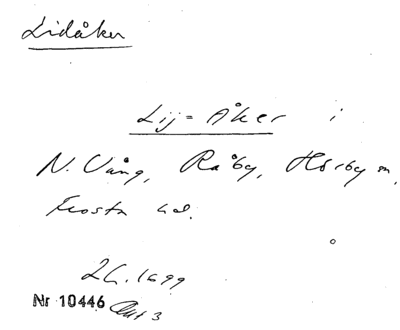 Lidåker
Lij-Åker i
N. Vång, Råby, Hörby sn,
Frosta hd.
LG. 1699
Nr 10446 Akt 3